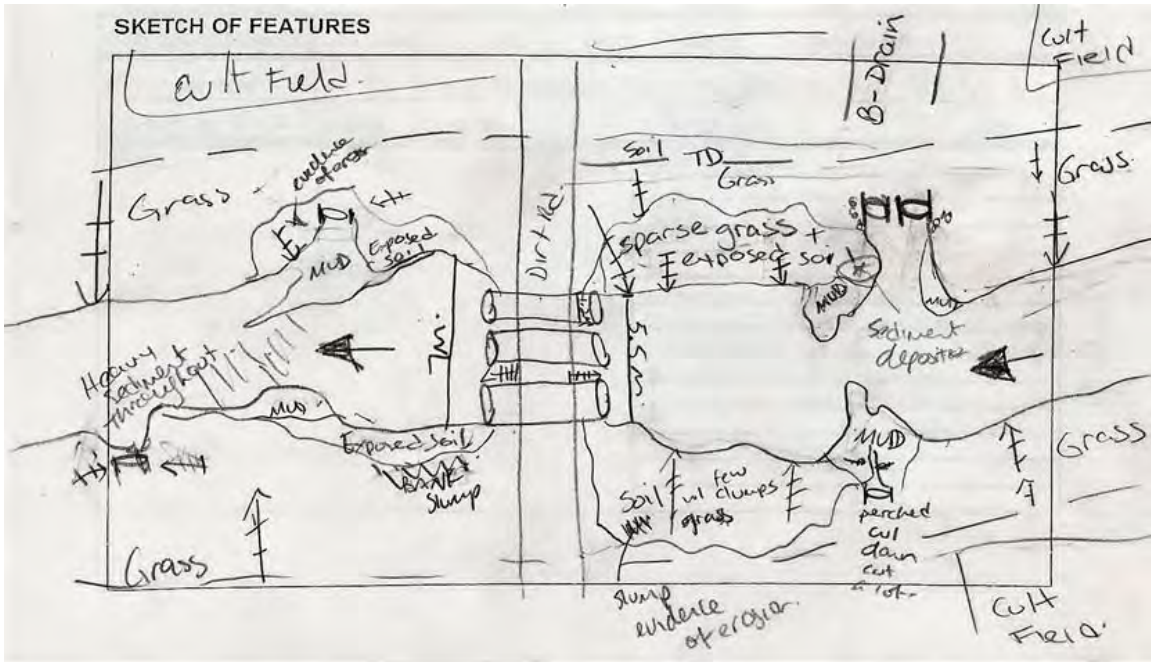 SKETCH OF FEATURES
Cult Field.
B-Drain
Cult
Field
Grass
evidence
of erosion
Soil TD
Grass
Grass
Dirt Rd.
Exposed
Soil
MUD
sparse grass +
exposed soil
MUD
MUD
Sediment
deposition
7m.
5.5m.
Heavy
Sediment
Throughout
MUD
Exposed Soil
BANK
Slump
MUD
Grass
Soil w/ few
clumps
grass
perched
cul
down
cut
a lot.
Grass
Slump
evidence
of erosion.
Cult
Field.